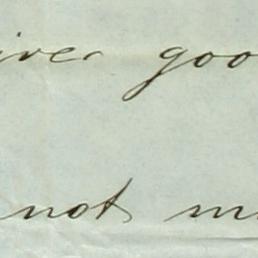 iver goo
not m